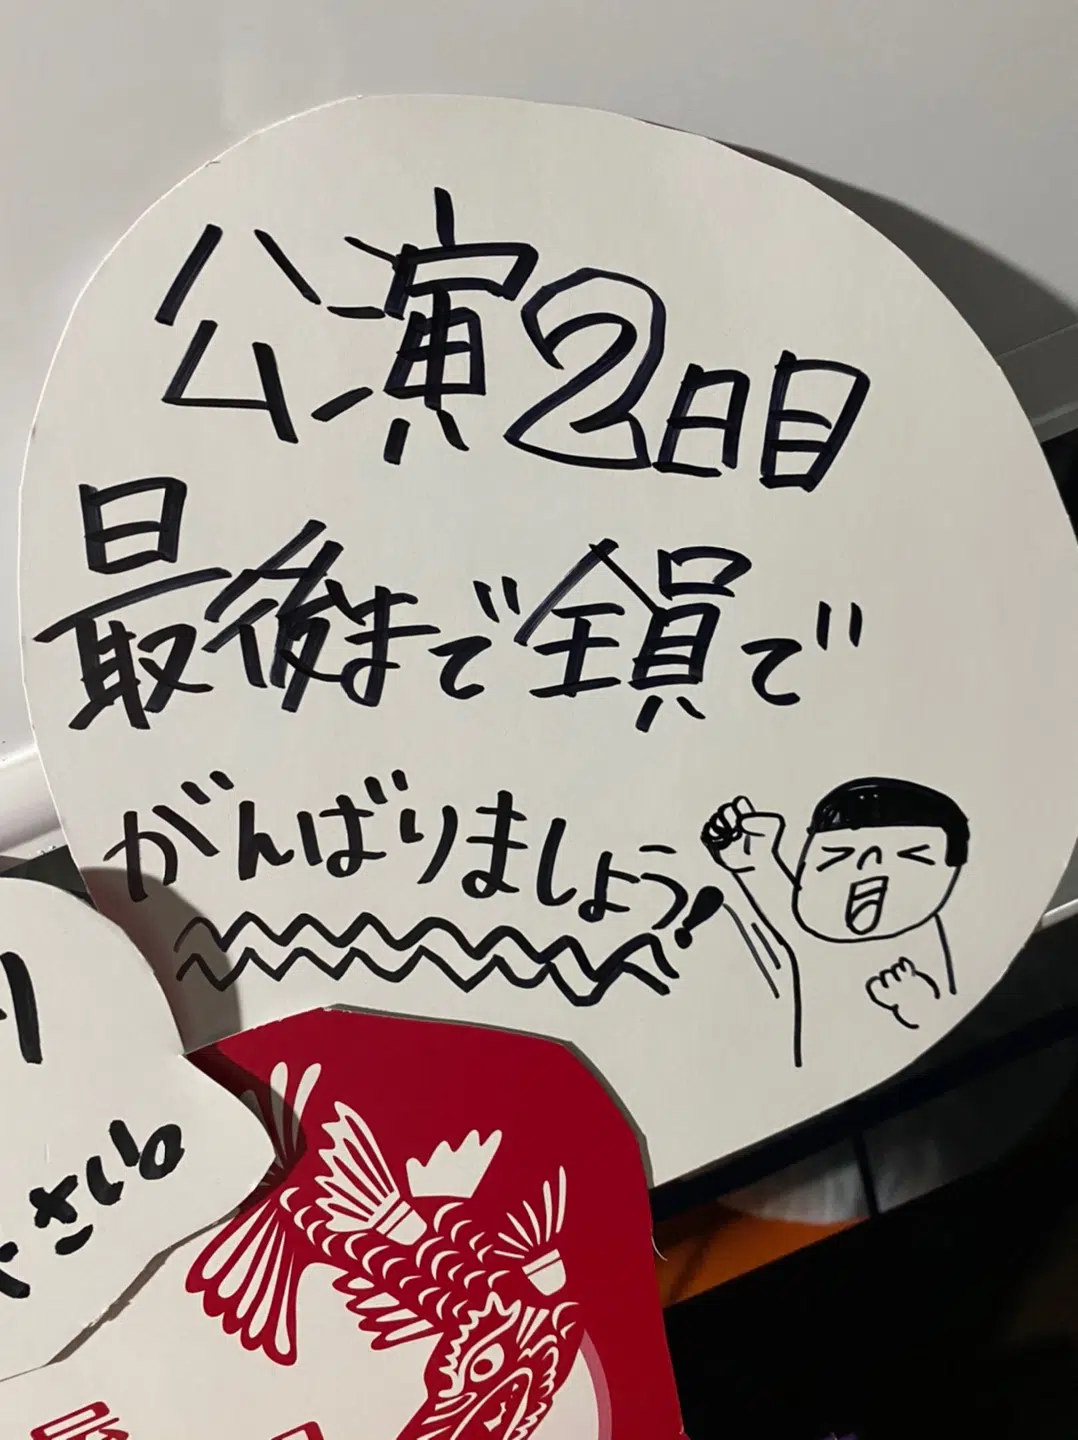 公演2日目
最後まで全員で
がんばりましょう!
さい。